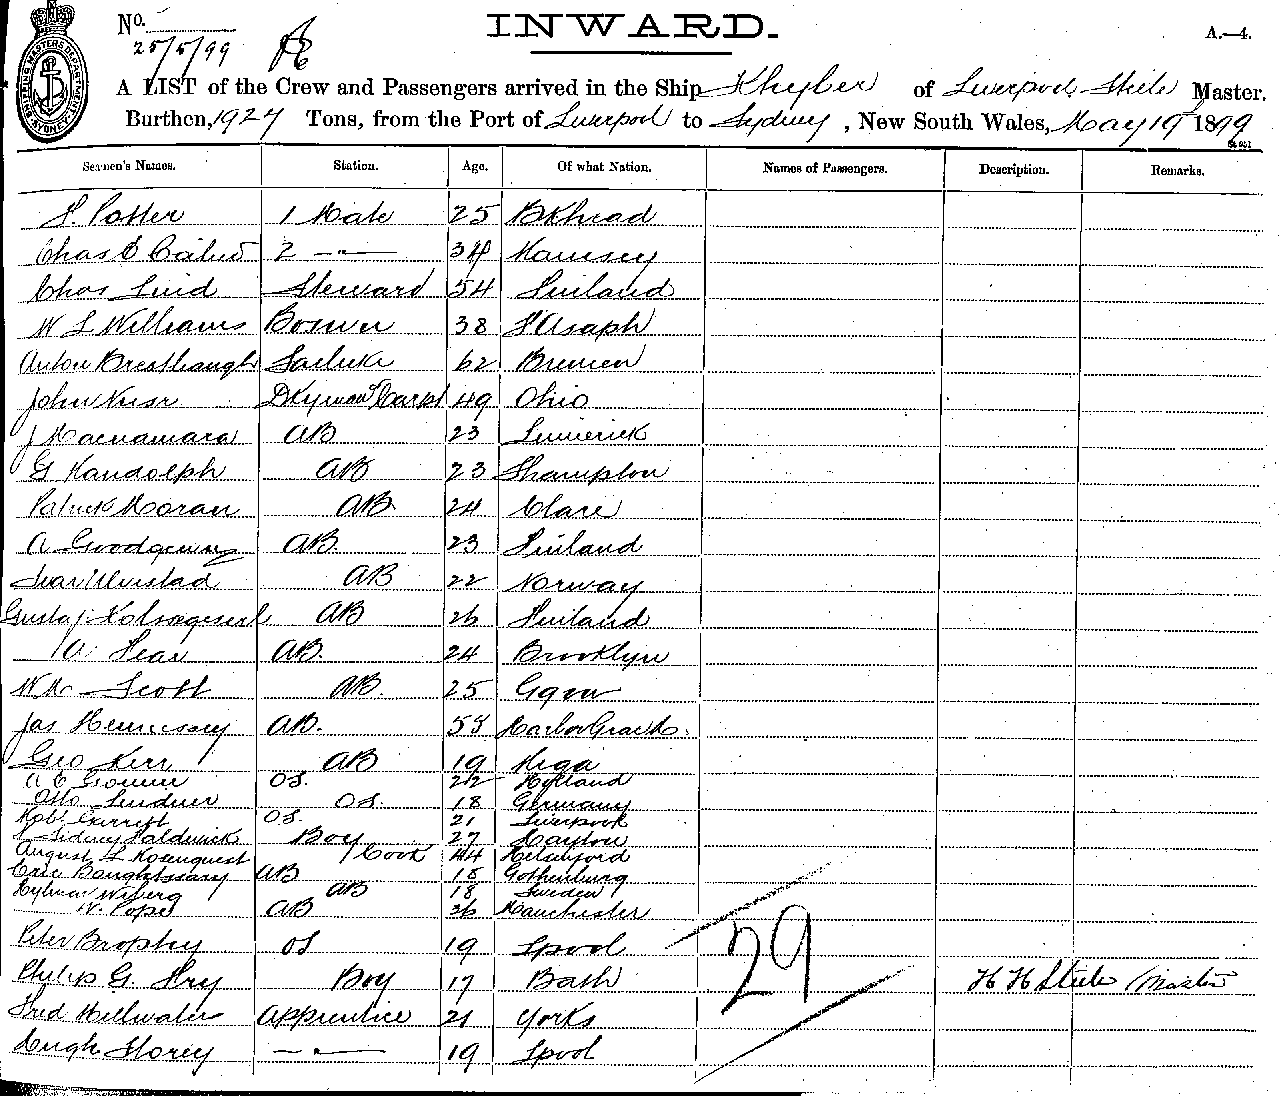 No.
25/5/99
INWARD.
A.—4.
A LIST of the Crew and Passengers arrived in the Ship Khyber of Liverpool Steele Master.
Burthen, 1927 Tons, from the Port of Liverpool to Sydney, New South Wales, May 19 1899
Seamen's Names. Station. Age. Of what Nation. Names of Passengers. Description. Remarks.
Potter 1 Mate 25 BKhead
Chas 2 —"— 34 Ramsey
Chas Lind Steward 54 Finland
W L Williams Bosun 38 St Asaph
Anton 62 Bremen
John 49 Ohio
J Macnamara AB 23 Limerick
G Randolph AB 23 Shampton
Patrick Moran AB 24 Clare
A AB. 23 Finland
AB 22 Norway
Gustaf AB 26 Finland
A AB. 24 Brooklyn
Wm Scott AB. 25 Ggow
Jas Hennessey AB. Harbor Grace
Geo Kerr AB 19 Riga
A E OS. 22
Otto Lindner OS. 18 Germany
Robt Garrett OS. 21 Liverpool
Sidney Boy
August L Rosenquest Cook 44
Eric AB 18 Gothenburg
AB 18 Sweden
W. Pope AB 36 Manchester
Peter Brophy OS 19 Lpool
Philip G. Fry Boy 17 Bath
H H Steele Master
Fred Apprentice 21 Yorks
Hugh Storey —"— 19 Lpool
29